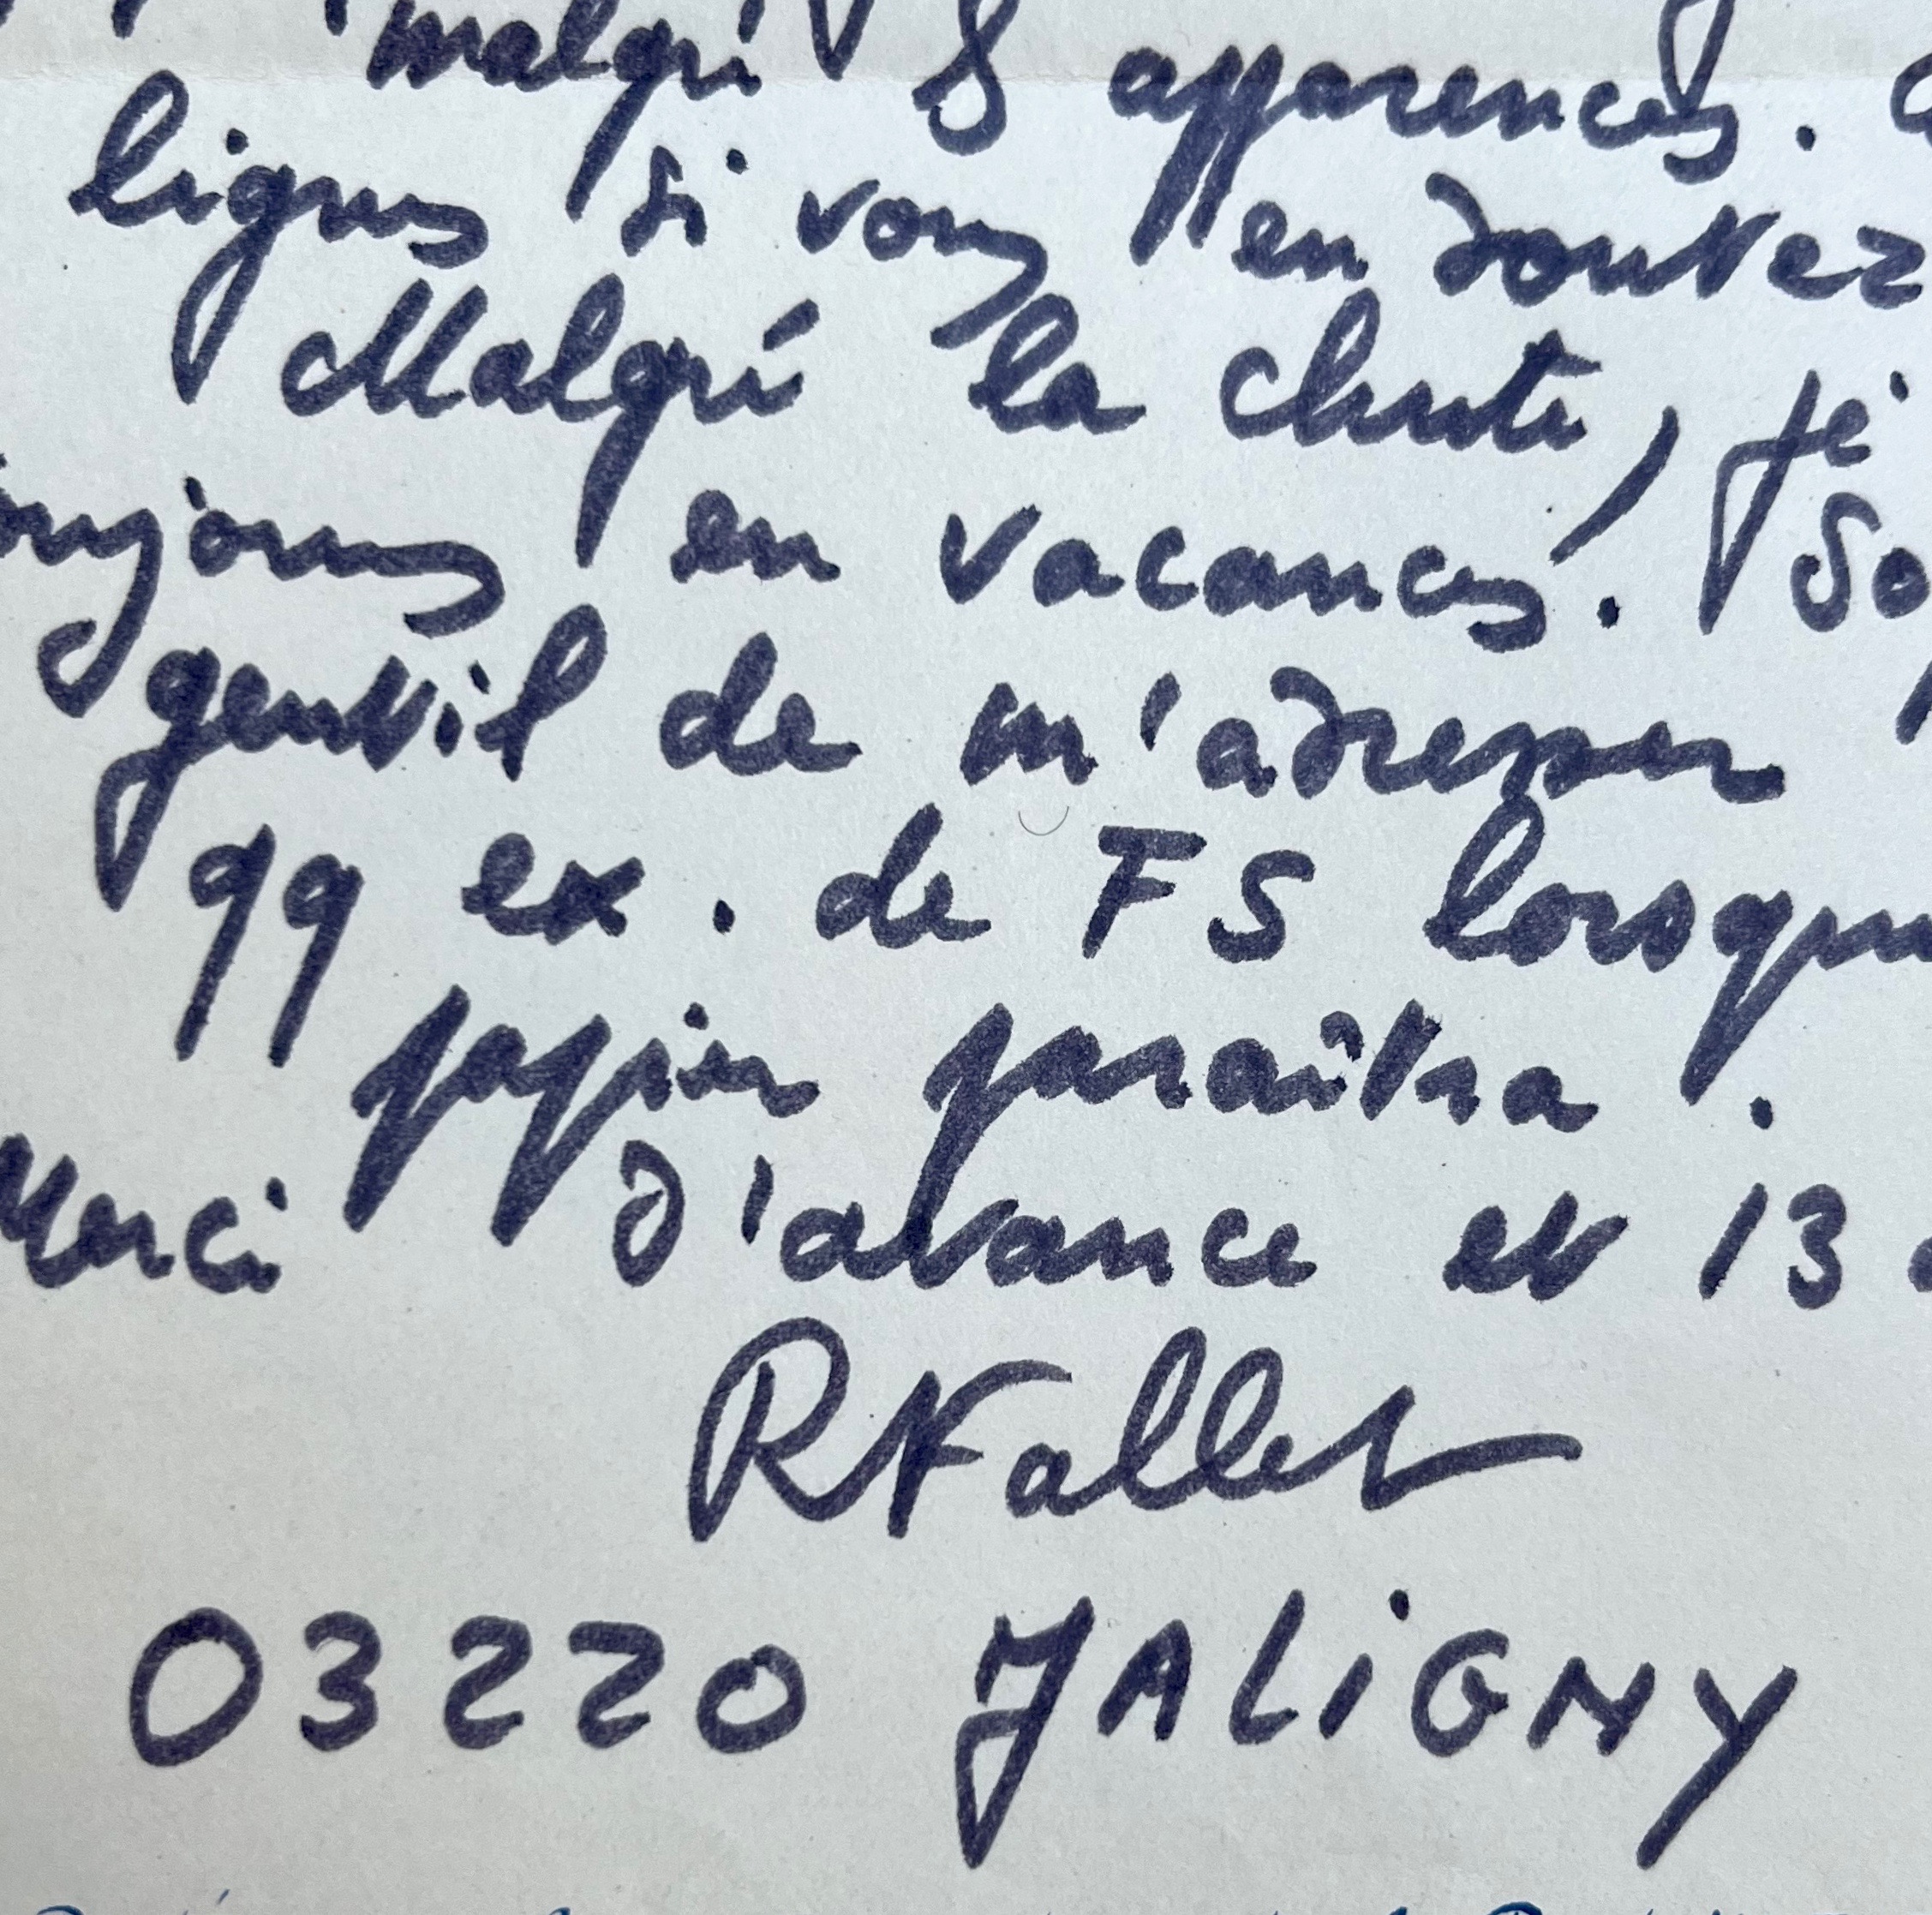 malgré apparences.
lignes si vous en doutez
Malgré la chute, je
en vacances. So
gentil de m'adresser
qq ex. de FS lorsque
papier paraîtra.
Merci d'avance et 13
RFallet
03220 JALiGNY